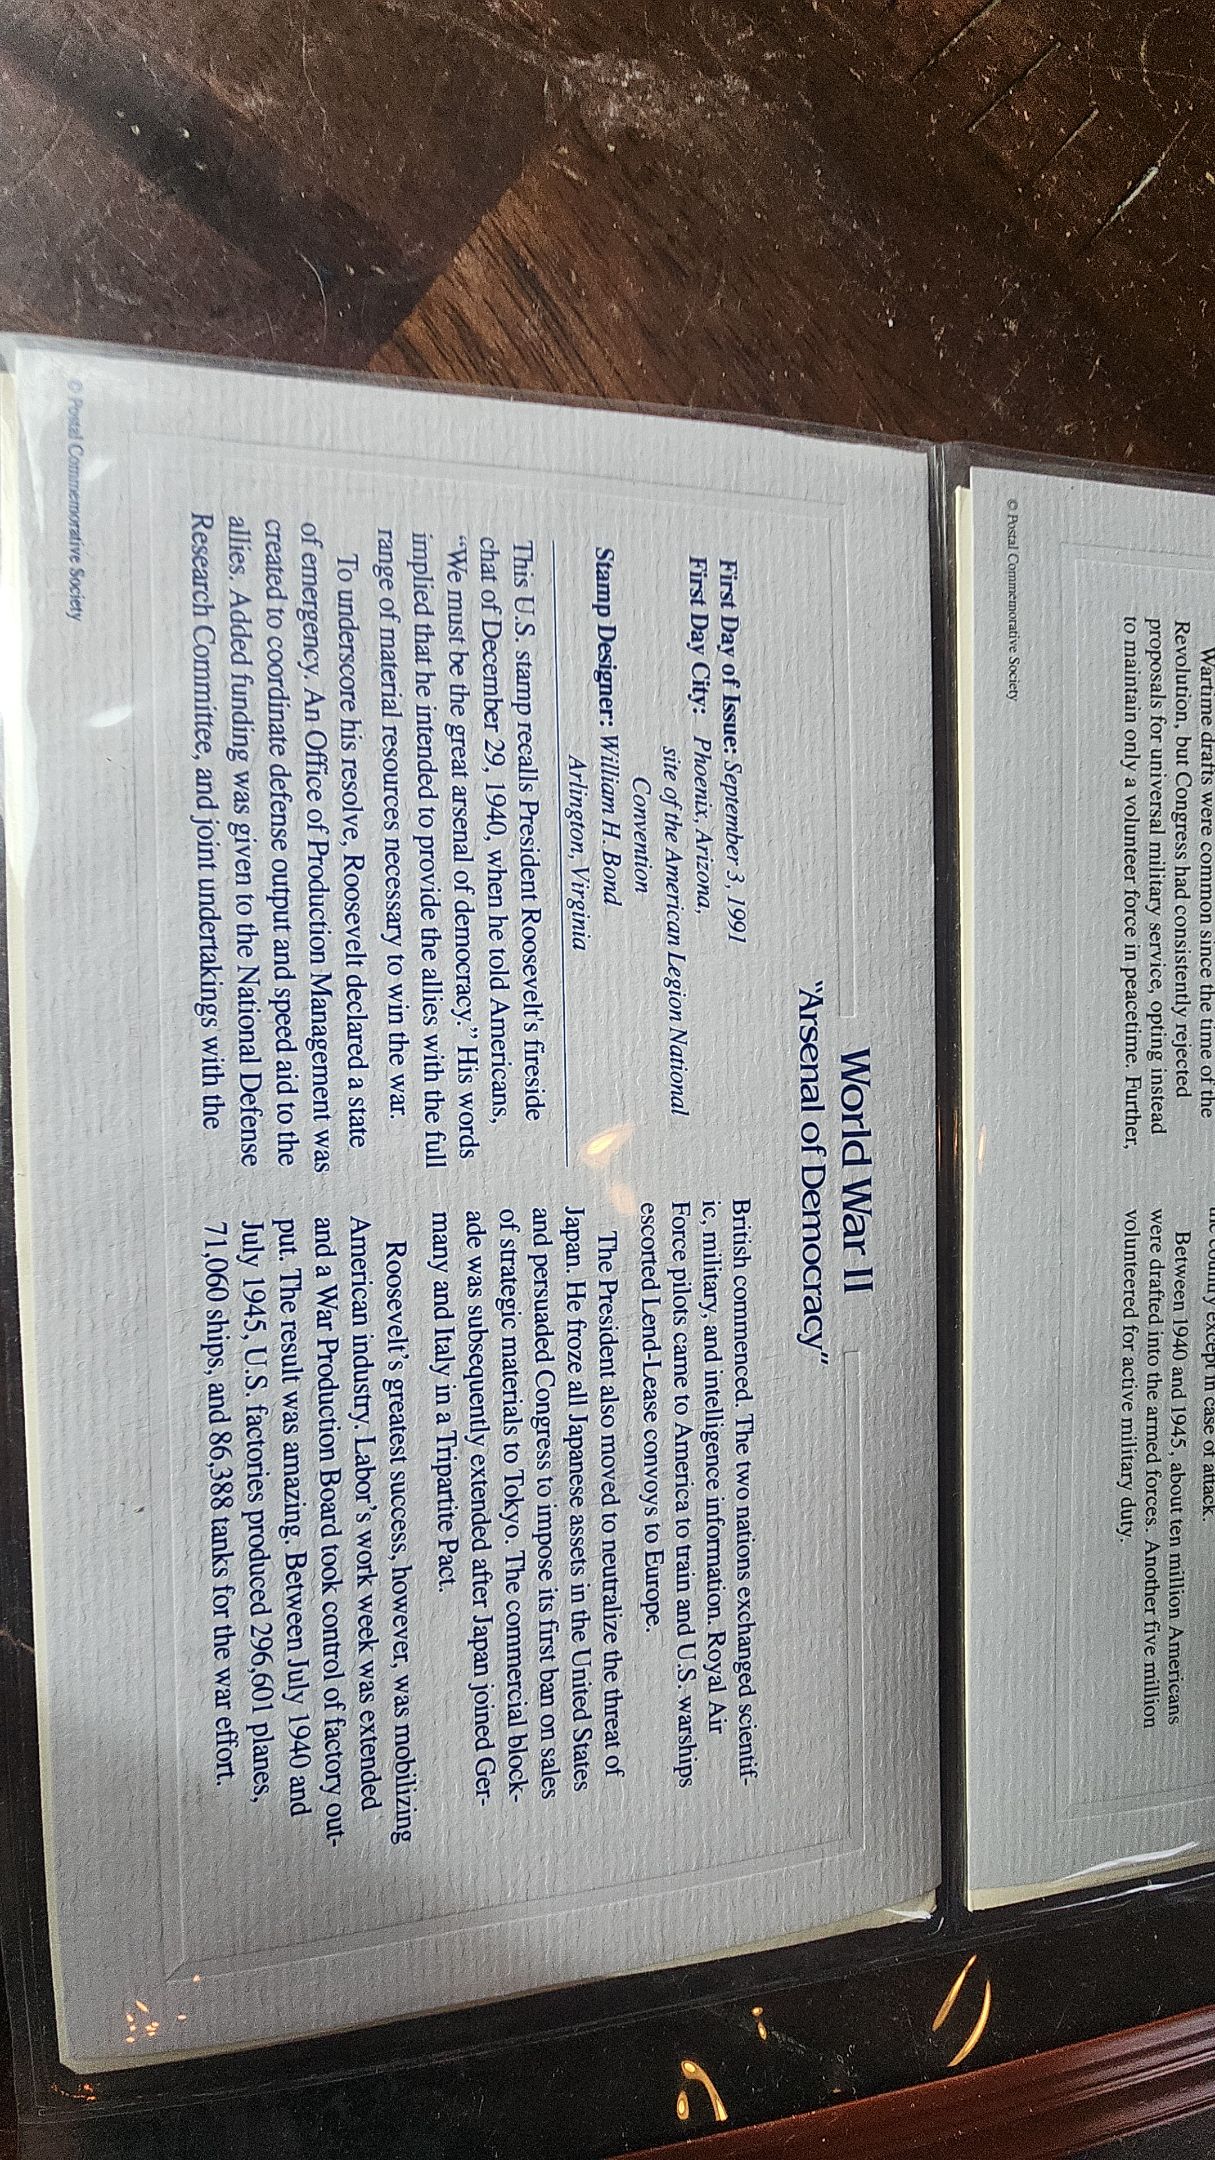 Wartime drafts were common since the time of the
Revolution, but Congress had consistently rejected
proposals for universal military service, opting instead
to maintain only a volunteer force in peacetime. Further,
the country except in case of attack.
Between 1940 and 1945, about ten million Americans
were drafted into the armed forces. Another five million
volunteered for active military duty.
© Postal Commemorative Society
World War II
“Arsenal of Democracy”
First Day of Issue: September 3, 1991
First Day City: Phoenix, Arizona,
site of the American Legion National
Convention
Stamp Designer: William H. Bond
Arlington, Virginia
This U.S. stamp recalls President Roosevelt's fireside
chat of December 29, 1940, when he told Americans,
“We must be the great arsenal of democracy.” His words
implied that he intended to provide the allies with the full
range of material resources necessary to win the war.
To underscore his resolve, Roosevelt declared a state
of emergency. An Office of Production Management was
created to coordinate defense output and speed aid to the
allies. Added funding was given to the National Defense
Research Committee, and joint undertakings with the
British commenced. The two nations exchanged scientif-
ic, military, and intelligence information. Royal Air
Force pilots came to America to train and U.S. warships
escorted Lend-Lease convoys to Europe.
The President also moved to neutralize the threat of
Japan. He froze all Japanese assets in the United States
and persuaded Congress to impose its first ban on sales
of strategic materials to Tokyo. The commercial block-
ade was subsequently extended after Japan joined Ger-
many and Italy in a Tripartite Pact.
Roosevelt’s greatest success, however, was mobilizing
American industry. Labor’s work week was extended
and a War Production Board took control of factory out-
put. The result was amazing. Between July 1940 and
July 1945, U.S. factories produced 296,601 planes,
71,060 ships, and 86,388 tanks for the war effort.
© Postal Commemorative Society